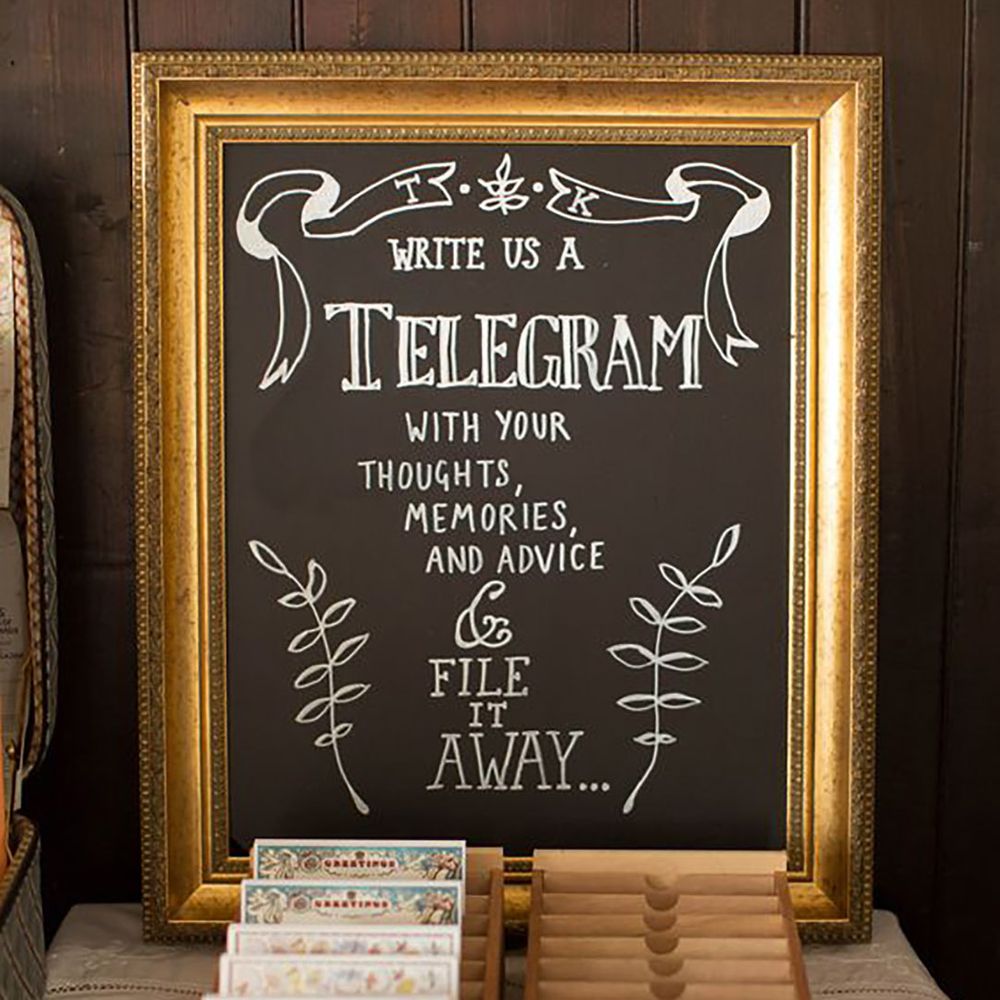 T · K
WRITE US A
TELEGRAM
WITH YOUR
THOUGHTS,
MEMORIES,
AND ADVICE
&
FILE
IT
AWAY...
GREETINGS
GREETINGS